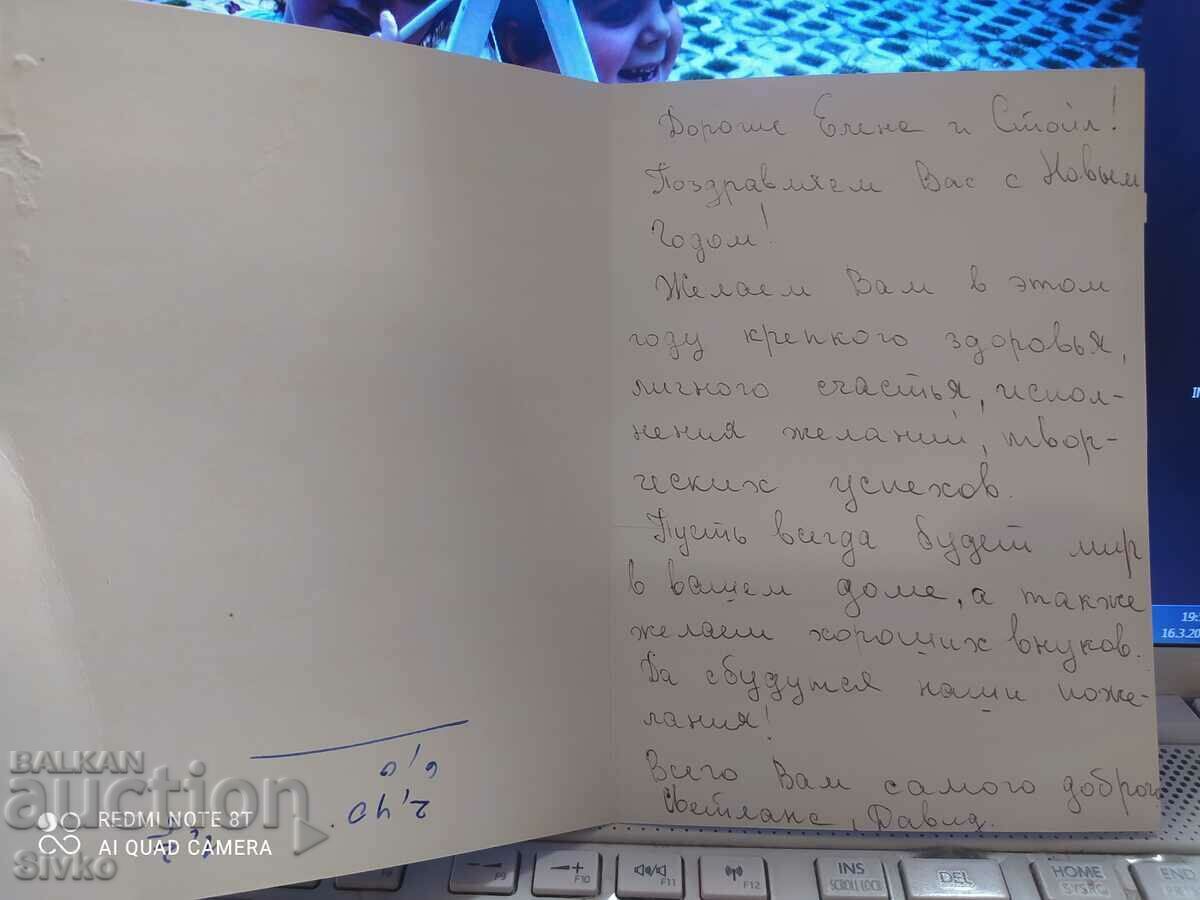 Дорогие Елена и Стоил!
Поздравляем Вас с Новым
Годом!
Желаем Вам в этом
году крепкого здоровья,
личного счастья, испол-
нения желаний, твор-
ческих успехов.
Пусть всегда будет мир
в вашем доме, а также
желаем хороших внуков.
Да сбудутся наши поже-
лания!
Всего Вам самого доброго
Светлана, Давид.
6,0
2,40
BALKAN
auction
REDMI NOTE 8T
AI QUAD CAMERA
Sivko
19:
16.3.20
IN
F9
F10
F11
F12
INS
SCROLL LOCK
DEL
HOME
SYSRQ
END